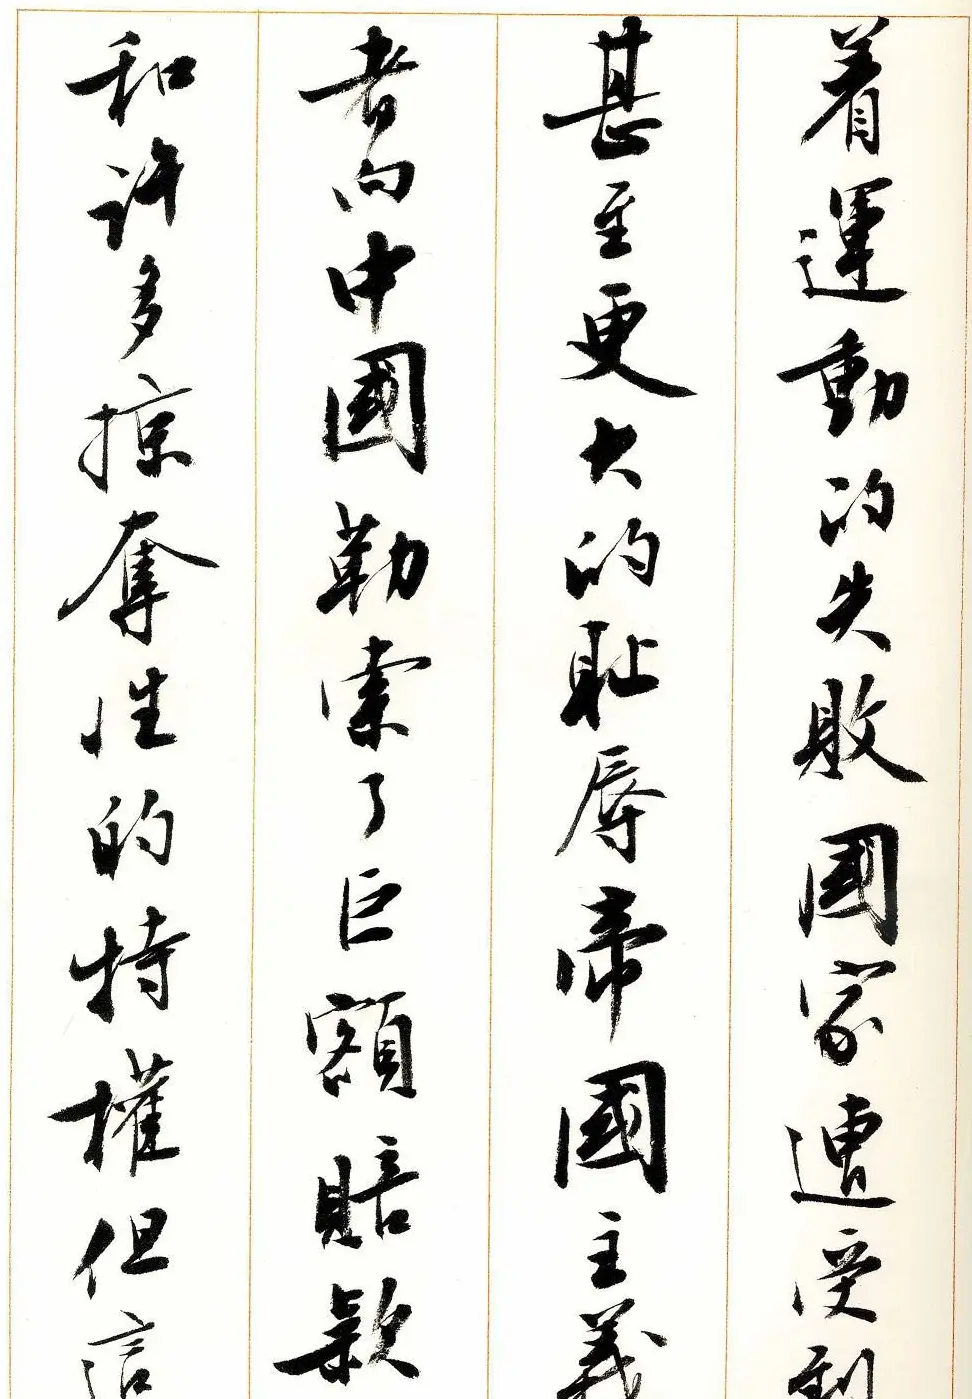 着運動的失敗國家遭受到
甚至更大的耻辱帝國主義
者向中國勒索了巨額賠款
和許多掠奪性的特權但這